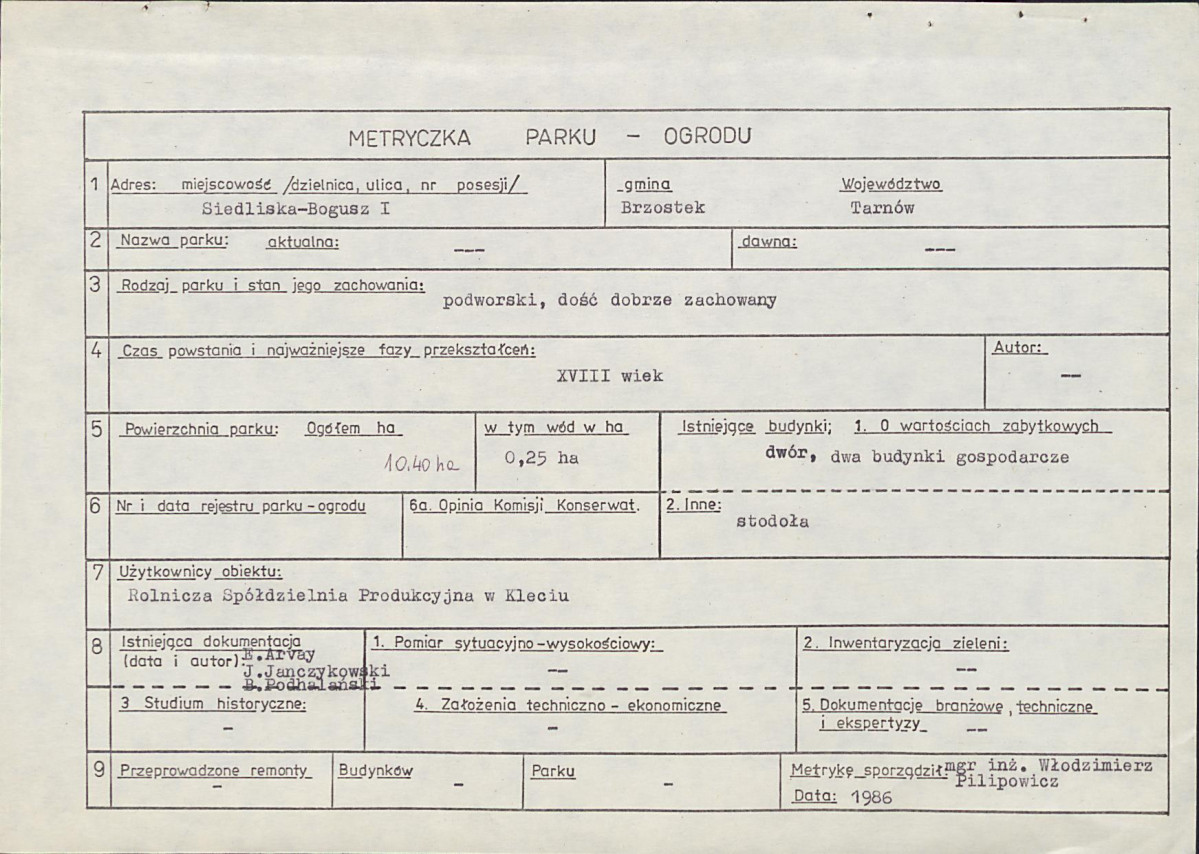 METRYCZKA PARKU - OGRODU
1 Adres: miejscowość /dzielnica, ulica, nr posesji/
Siedliska-Bogusz I
gmina
Brzostek
Województwo
Tarnów
2 Nazwa parku: aktualna: ---
dawna: ---
3 Rodzaj parku i stan jego zachowania:
podworski, dość dobrze zachowany
4 Czas powstania i najważniejsze fazy przekształceń:
XVIII wiek
Autor:
--
5 Powierzchnia parku: Ogółem ha
10.40 ha
w tym wód w ha
0,25 ha
Istniejące budynki; 1. O wartościach zabytkowych
dwór, dwa budynki gospodarcze
6 Nr i data rejestru parku - ogrodu
6a. Opinia Komisji Konserwat.
2. Inne:
stodoła
7 Użytkownicy obiektu:
Rolnicza Spółdzielnia Produkcyjna w Kleciu
8 Istniejąca dokumentacja
(data i autor): E.Arvay
J.Janczykowski
B.Podhalański
1. Pomiar sytuacyjno - wysokościowy:
--
2. Inwentaryzacja zieleni:
--
3 Studium historyczne:
-
4. Założenia techniczno - ekonomiczne
-
5. Dokumentacje branżowe, techniczne
i ekspertyzy --
9 Przeprowadzone remonty
-
Budynków
-
Parku
-
Metrykę sporządził: mgr inż. Włodzimierz
Pilipowicz
Data: 1986